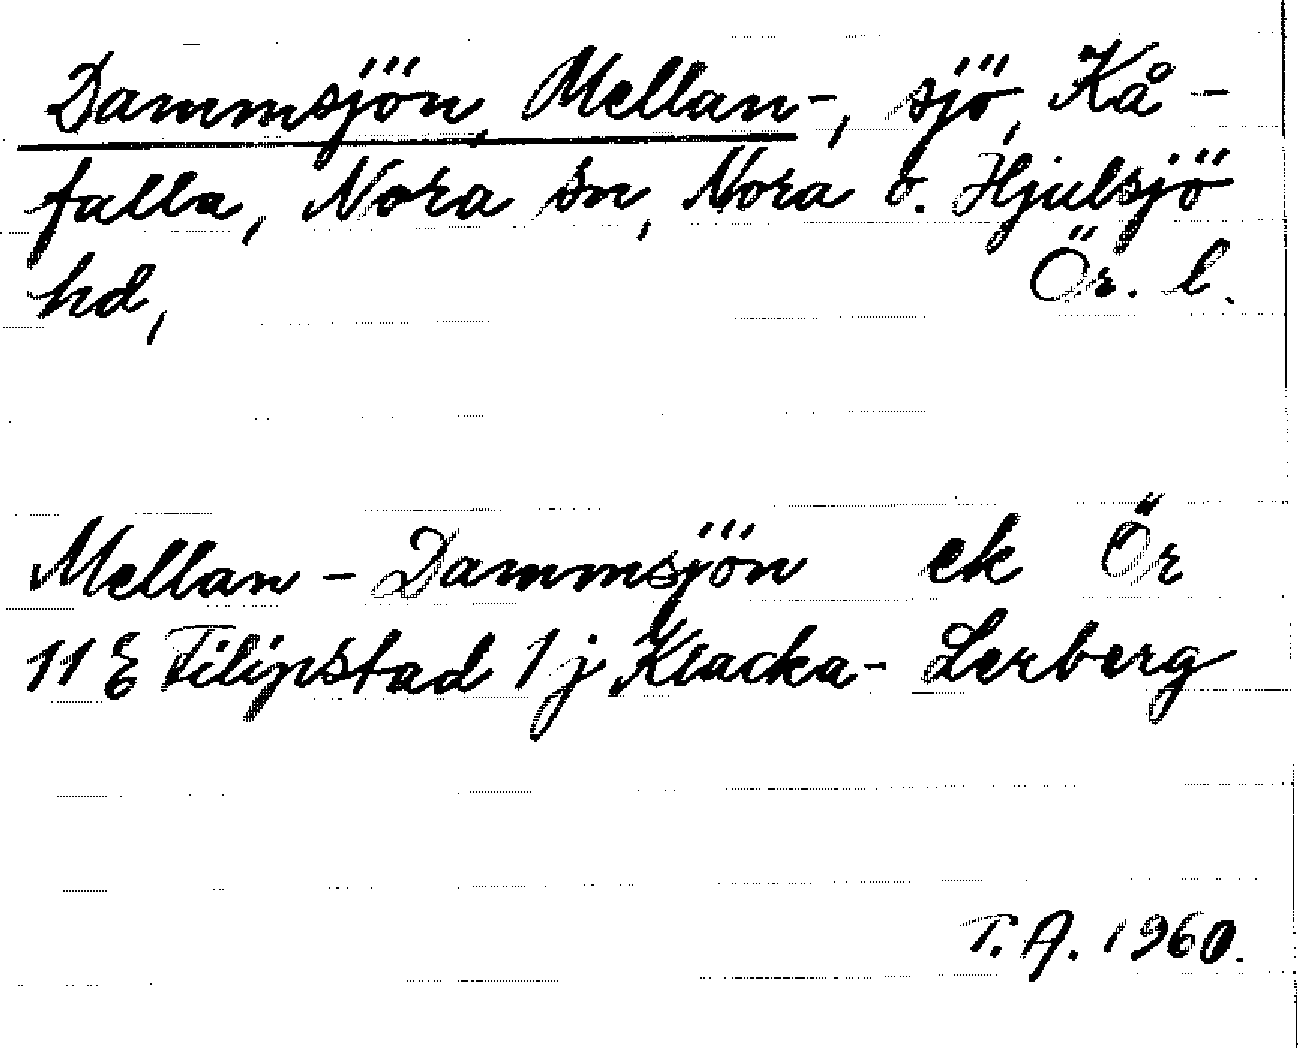 Dammsjön, Mellan-, sjö, Kå-
falla, Nora sn, Nora o. Hjulsjö
hd, Ör. l.
Mellan-Dammsjön ek Ör
11 E Filipstad 1 j Klacka-Lerberg
T.A. 1960.